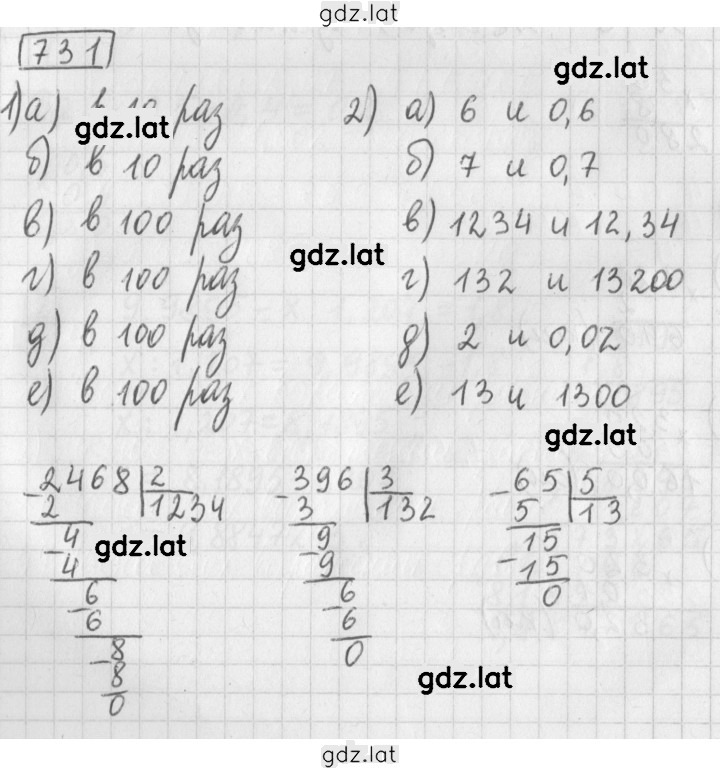 gdz.lat
731
gdz.lat
1) а) в 10 раз 2) а) 6 и 0,6
gdz.lat
б) в 10 раз б) 7 и 0,7
в) в 100 раз в) 1234 и 12,34
gdz.lat
г) в 100 раз г) 132 и 13200
д) в 100 раз д) 2 и 0,02
е) в 100 раз е) 13 и 1300
gdz.lat
-2468 2 -396 3 -65 5
2 1234 3 132 5 13
4 9 15
gdz.lat
-4 -9 -15
6 6 0
-6 -6
8 0
-8
gdz.lat
0
gdz.lat